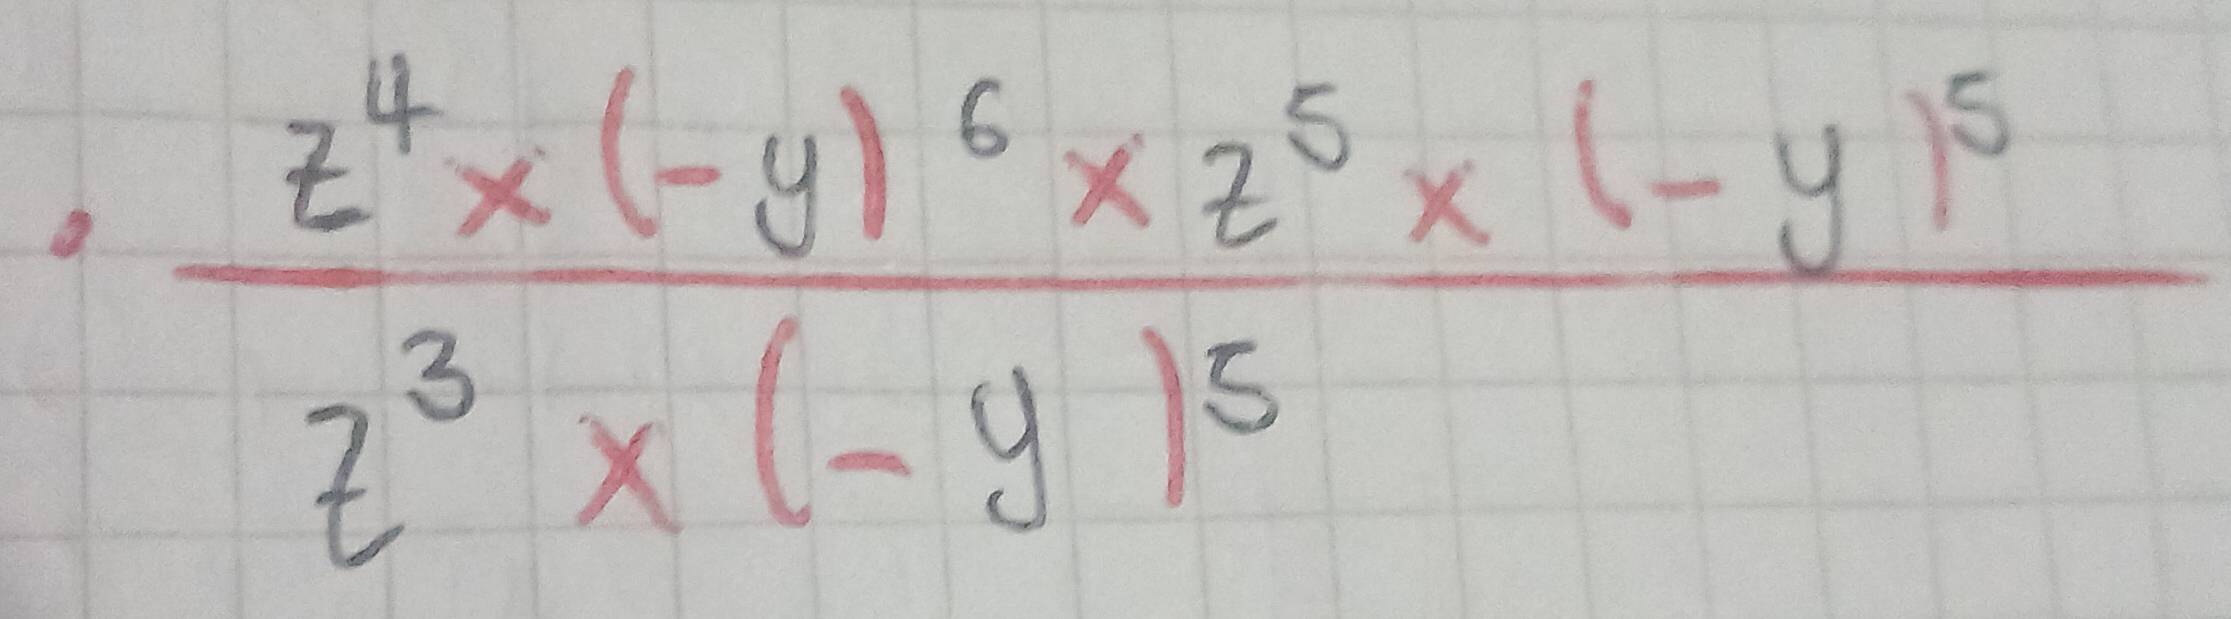 . z⁴ × (-y)⁶ × z⁵ × (-y)⁵
z³ × (-y)⁵